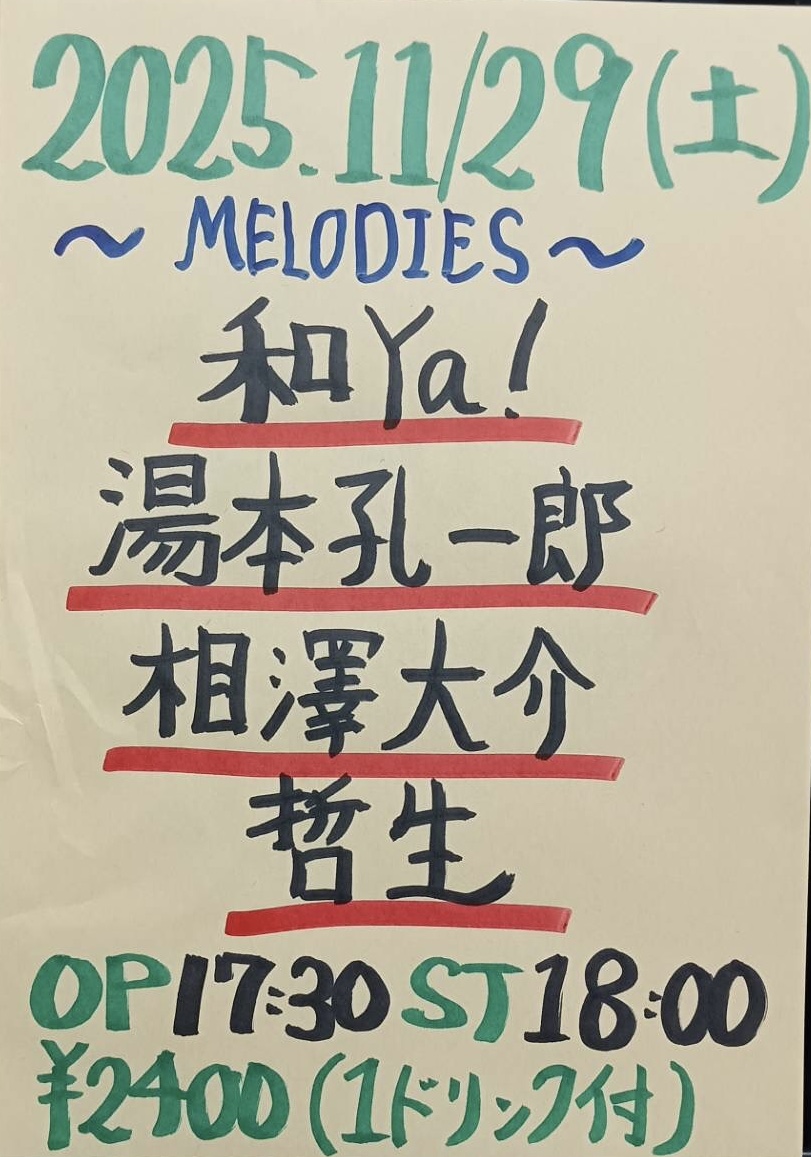 2025.11/29(土)
～MELODIES～
和Ya!
湯本孔一郎
相澤大介
哲生
OP17:30 ST18:00
¥2400(1ドリンク付)